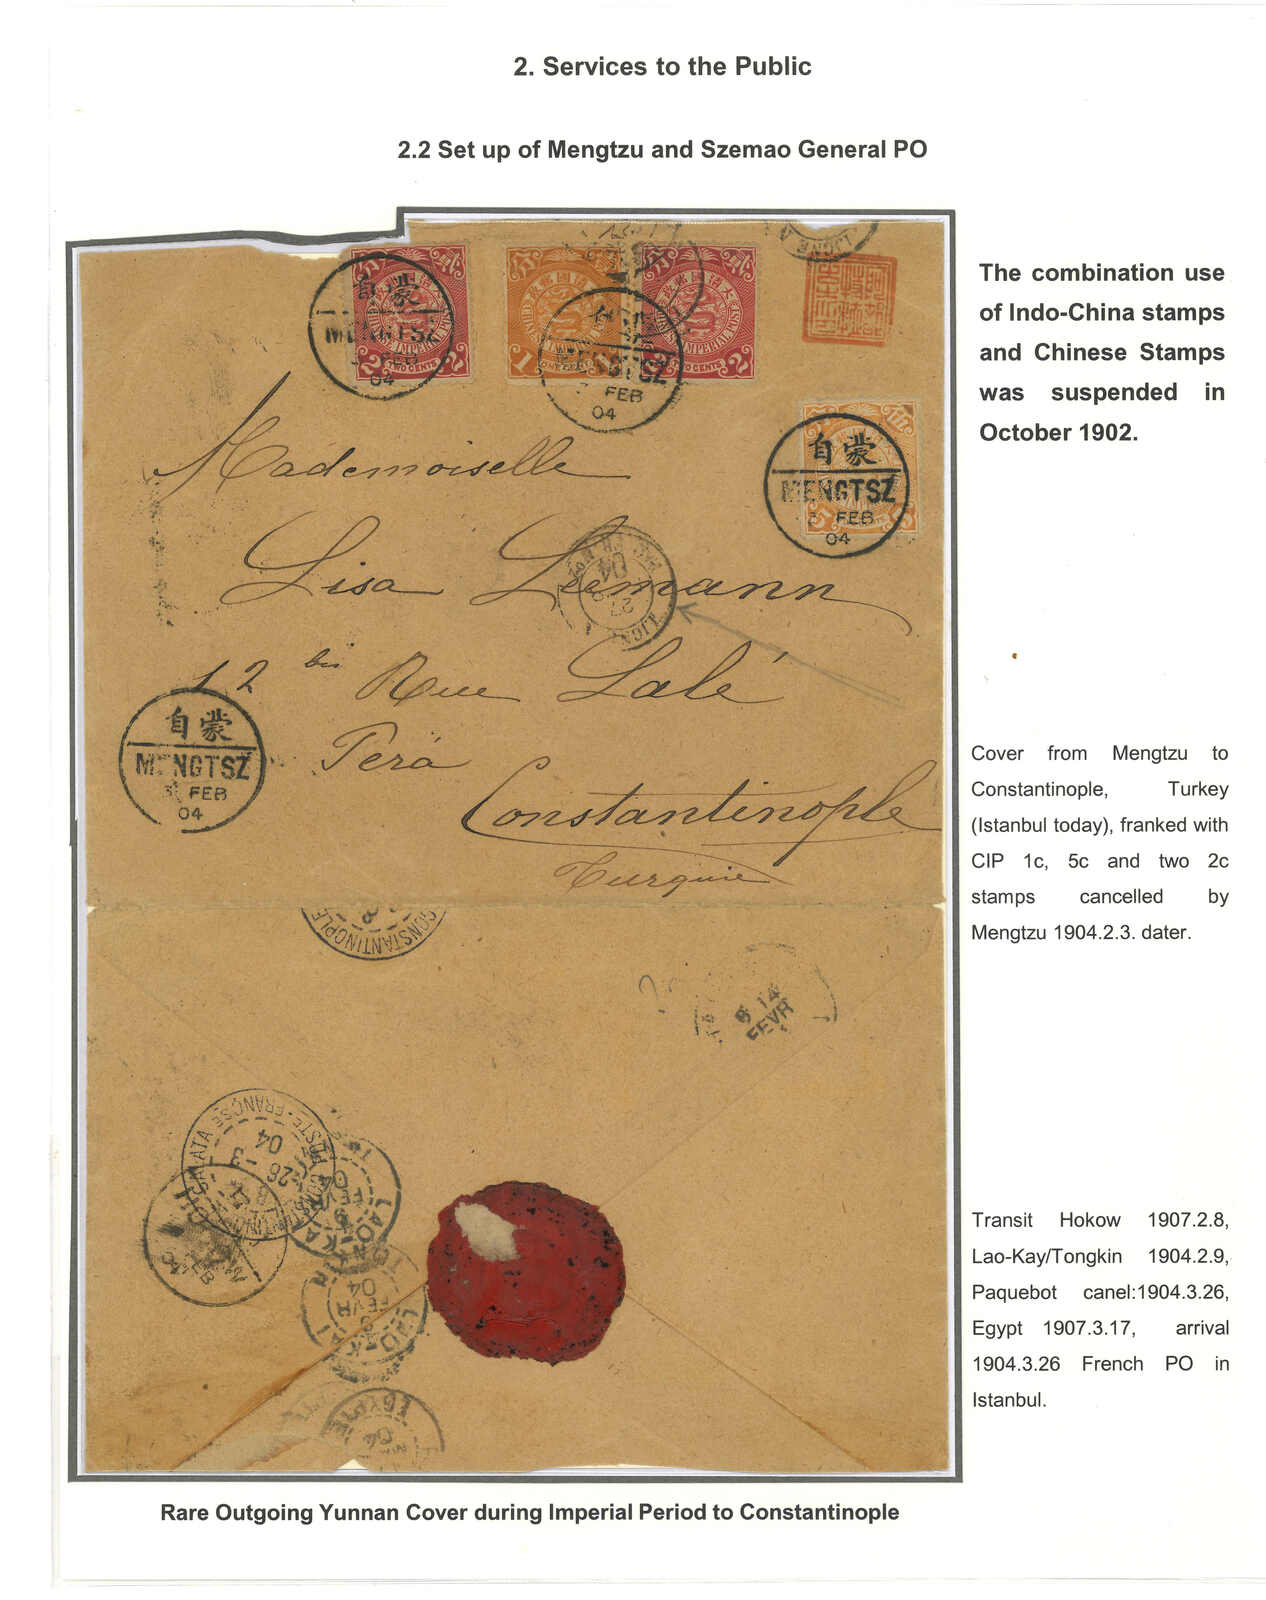 2. Services to the Public
2.2 Set up of Mengtzu and Szemao General PO
The combination use
of Indo-China stamps
and Chinese Stamps
was suspended in
October 1902.
蒙自
MENGTSZ
FEB
04
TWO CENTS
1
2
MENGTSZ
FEB
04
LIGNE
蒙自
MENGTSZ
FEB
04
5
Mademoiselle
Lisa Leemann
LIGNE
04
12 bis Rue Lalé
Pera
Constantinople
Turquie
蒙自
MENGTSZ
FEB
04
Cover from Mengtzu to
Constantinople, Turkey
(Istanbul today), franked with
CIP 1c, 5c and two 2c
stamps cancelled by
Mengtzu 1904.2.3. dater.
CONSTANTINOPLE
14
FEVR
GALATA POSTE-FRANÇSE
26
04
LAO-KAY
TONKIN
FEVR
LAO-KAY
FEVR
04
EGYPTE
04
Transit Hokow 1907.2.8,
Lao-Kay/Tongkin 1904.2.9,
Paquebot canel:1904.3.26,
Egypt 1907.3.17, arrival
1904.3.26 French PO in
Istanbul.
Rare Outgoing Yunnan Cover during Imperial Period to Constantinople